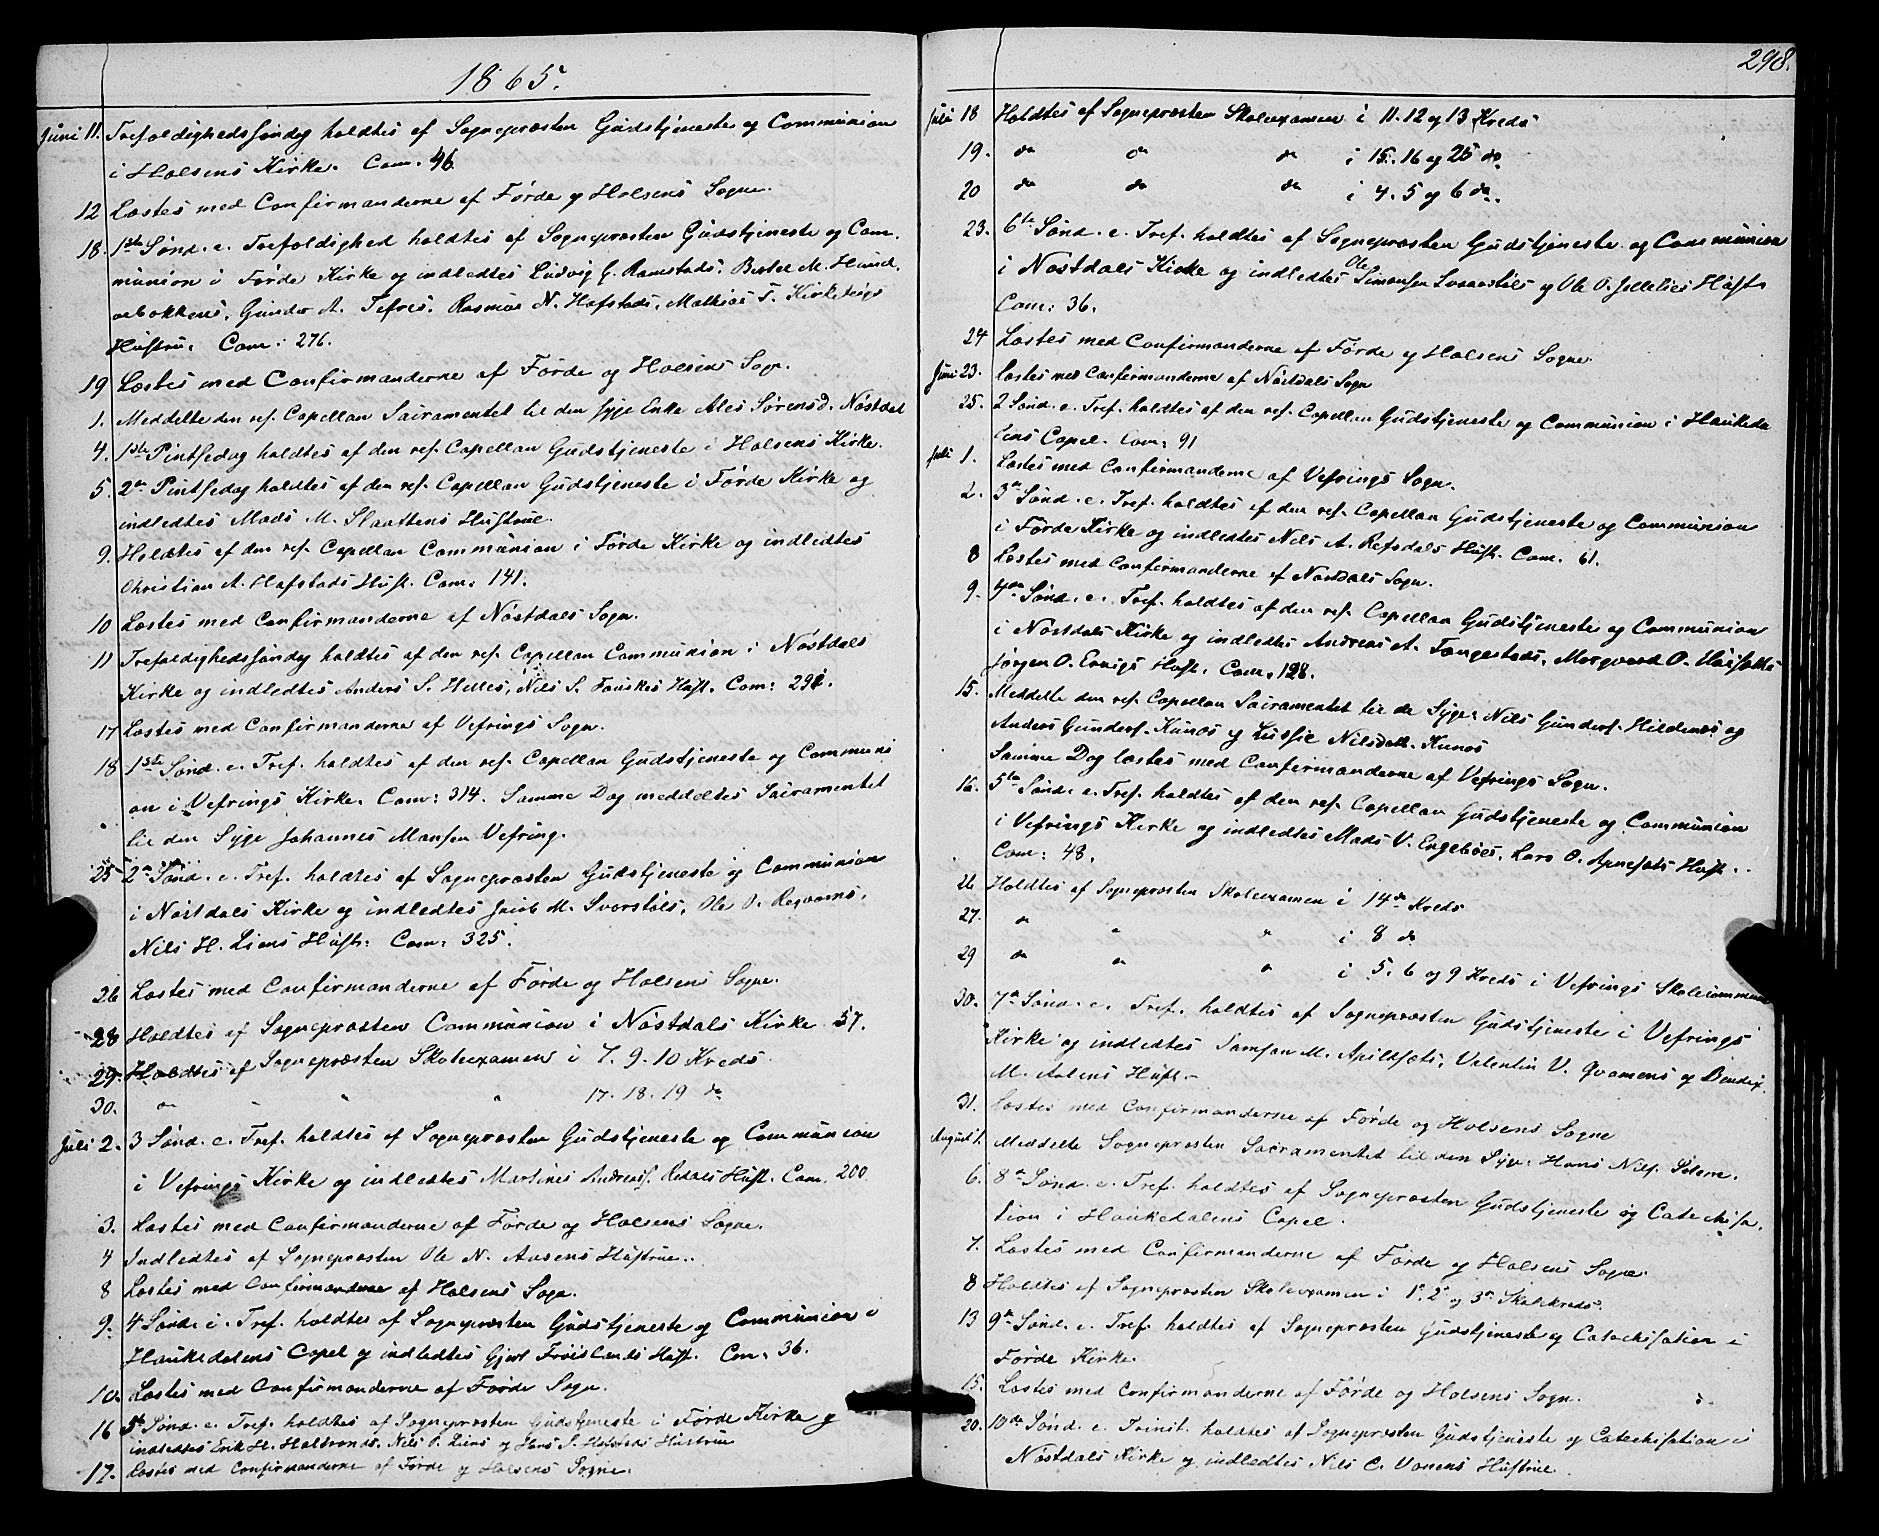 1865.
Juni 11. Trefoldighedssöndag holdtes af Sognepræsten Gudstjeneste og Communion
i Holsens Kirke. Com. 46
12 Læstes med Confirmanderne af Førde og Holsens Sogne.
18. 1ste Sønd. e. Trefoldighed holdtes af Sognepræsten Gudstjeneste og Com-
munion i Førde Kirke og indledtes Ludvig G. Ramstads, Bertel M. Hund-
Gunder A. Tefres, Rasmus N. Hafstads, Mathias T. Kirketeigs
Hustru. Com: 276.
19 Læstes med Confirmanderne af Førde og Holsens Sogn.
1. Meddelte den res. Capellan Sacramentet til den syge Enke Ales Sørensd. Nøstdal
4. 1ste Pintsedag holdtes af den res. Capellan Gudstjeneste i Holsens Kirke.
5. 2n Pintsedag holdtes af den res. Capellan Gudstjeneste i Førde Kirke og
indledtes Mads M. Slaattens Hustrue.
9. Holdtes af den res. Capellan Communion i Førde Kirke og indledtes
Christian A. Hafstads Hust. Com: 141.
10 Læstes med Confirmanderne af Nøstdals Sogn.
11 Trefoldighedssöndag holdtes af den res. Capellan Communion i Nøstdals
Kirke og indledtes Anders S. Helles, Nils S. Fauskes Hust. Com: 291.
17 Læstes med Confirmanderne af Vefrings Sogn.
18 1ste Sønd. e. Tref. holdtes af den res. Capellan Gudstjeneste og Communi
on i Vefrings Kirke. Com: 314. Samme Dag meddeltes Sacramentet
til den Syge Johannes Monsen Vefring.
25 2n Sønd. e. Tref. holdtes af Sognepræsten Gudstjeneste og Communion
i Nøstdals Kirke og indledtes Jacob M. Svorstöls, Ole O.
Nils H. Liens Hust: Com: 325.
26 Læstes med Confirmanderne af Førde og Holsens Sogne.
28 Holdtes af Sognepræsten Communion i Nøstdals Kirke 57.
29. Holdtes af Sognepræsten Skoleexamen i 7. 9. 10 Kreds
30. do " " " 17. 18. 19 do
Juli 2. 3 Sønd. e. Tref. holdtes af Sognepræsten Gudstjeneste og Communion
i Vefrings Kirke og indledtes Martines Andreas. Redals Hust. Com. 200
3. Læstes med Confirmanderne af Førde og Holsens Sogne.
4 Indledtes af Sognepræsten Ole N. Aasens Hustrue.
8 Læstes med Confirmanderne af Holsens Sogn.
9. 4 Sønd. e. Tref. holdtes af Sognepræsten Gudstjeneste og Communion i
Haukedalens Capel og indledtes Gjert Frøislands Hust. Com. 36.
10. Læstes med Confirmanderne af Førde Sogn.
16 5te Sønd. e. Tref. holdtes af Sognepræsten Gudstjeneste i Førde Kirke og
indledtes Erik H. Halbrends, Nils P. Liens og Hans S. Hafstads Hustrue
17. Læstes med Confirmanderne af Førde og Holsens Sogne.
298.
Juli 18 Holdtes af Sognepræsten Skoleexamen i 11. 12 og 13 Kreds
19. do do do i 15. 16 og 25 do
20 do do do i 4. 5 og 6 do.
23. 6te Sønd. e. Tref. holdtes af Sognepræsten Gudstjeneste og Communion
i Nøstdals Kirke og indledtes Ole Simonsen Svaarstöls og Ole O. Hust.
Com: 36.
24 Læstes med Confirmanderne af Førde og Holsens Sogne.
Juni 23. Læstes med Confirmanderne af Nøstdals Sogn
25. 2 Sønd. e. Tref. holdtes af den res. Capellan Gudstjeneste og Communion i Haukeda
lens Capel. Com: 91
Juli 1. Læstes med Confirmanderne af Vefrings Sogn.
2. 3n Sønd. e. Tref. holdtes af den res. Capellan Gudstjeneste og Communion
i Førde Kirke og indledtes Nils A. Refsdals Hust. Com. 61.
8 Læstes med Confirmanderne af Nøstdals Sogn.
9. 4de Sønd. e. Tref. holdtes af den res. Capellan Gudstjeneste og Communion
i Nøstdals Kirke og indledtes Andreas A. Tongestads, O.
Jørgen O. Hust. Com. 128.
15. Meddelte den res. Capellan Sacramentet til de Syge: Nils Gunders. Hildenæs og
Anders Gunders. Kunøs og Lussie Nilsdatt. Kunøs
Samme Dag læstes med Confirmanderne af Vefrings Sogn.
16. 5te Sønd. e. Tref. holdtes af den res. Capellan Gudstjeneste og Communion
i Vefrings Kirke og indledtes Mads V. Engebøes, Lars O. Hust.
Com: 48.
26 Holdtes af Sognepræsten Skoleexamen i 14de Kreds
27. do " " i 8 do
29 do do do i 5. 6 og 9 Kreds i Vefrings Skolecommune
30. 7n Sønd. e. Tref. holdtes af Sognepræsten Gudstjeneste i Vefrings
Kirke og indledtes Samson M. Valentin V. Qvamens og Bendix
M. Aalens Hust.
31. Læstes med Confirmanderne af Førde og Holsens Sogne
August 1. Meddelte Sognepræsten Sacramentet til den Syge Hans Nils.
6. 8n Sønd. e. Tref. holdtes af Sognepræsten Gudstjeneste og Catechisa-
tion i Haukedalens Capel.
7. Læstes med Confirmanderne af Førde og Holsens Sogne.
8 Holdtes af Sognepræsten Skoleexamen i 1n, 2n og 3n Skolekreds.
13 9n Sønd. e. Tref. holdtes af Sognepræsten Gudstjeneste og Catechisation i
Førde Kirke.
15. Læstes med Confirmanderne af Førde og Holsens Sogn.
20. 10de Sønd. e. Trinit. holdtes af Sognepræsten Gudstjeneste og Catechisation i
Nøstdals Kirke og indledtes Nils C. Vonens Hustrue.